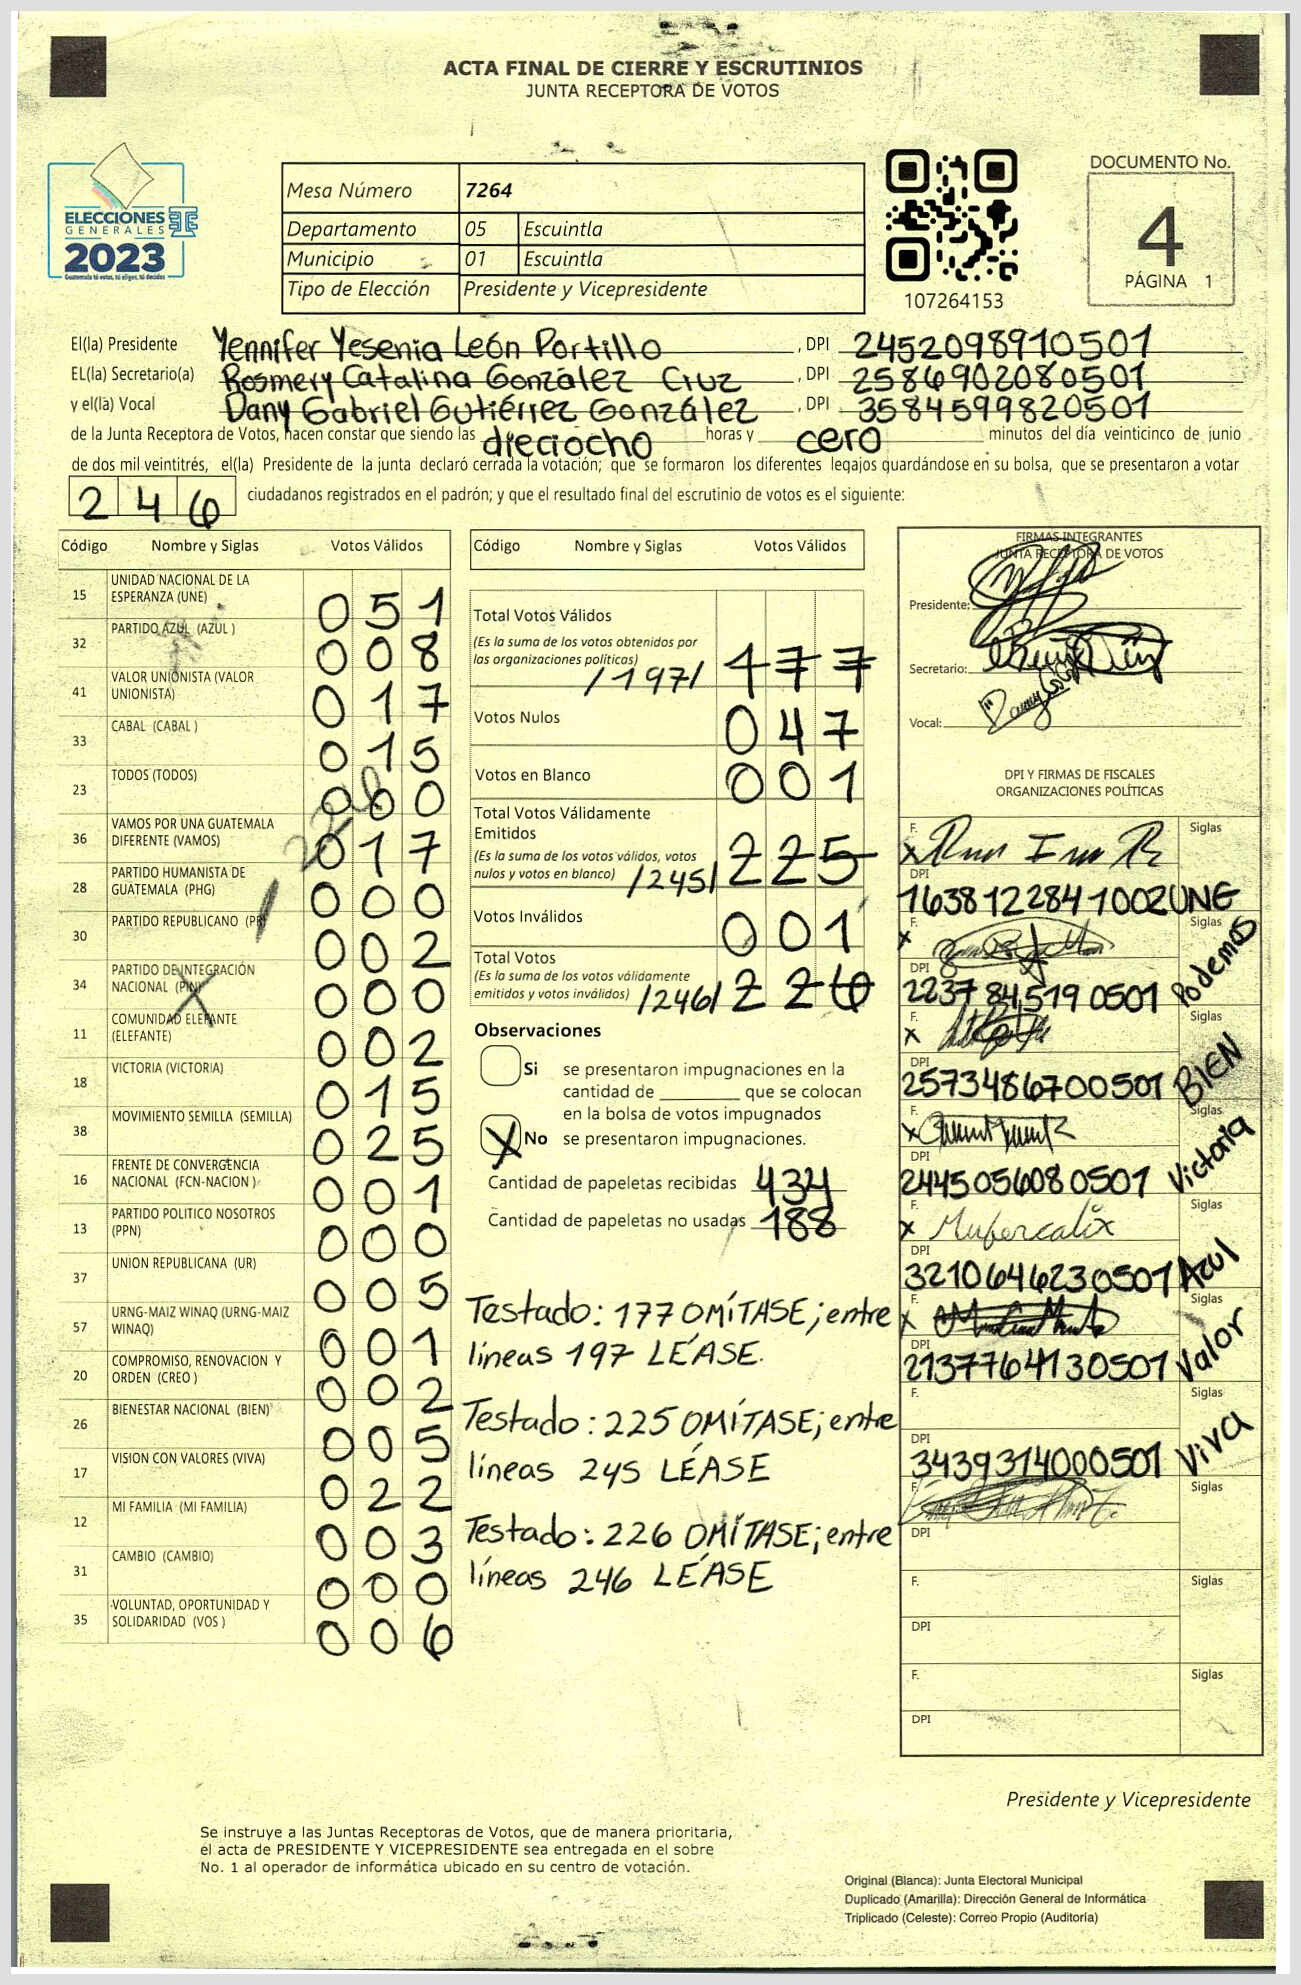 ACTA FINAL DE CIERRE Y ESCRUTINIOS
JUNTA RECEPTORA DE VOTOS
ELECCIONES
GENERALES
2023
Guatemala tú votas, tú eliges, tú decides
Mesa Número 7264
Departamento 05 Escuintla
Municipio 01 Escuintla
Tipo de Elección Presidente y Vicepresidente
107264153
DOCUMENTO No.
4
PÁGINA 1
El(la) Presidente Yennifer Yesenia León Portillo, DPI 2452098910501
EL(la) Secretario(a) Rosmery Catalina González Cruz, DPI 2586902080501
y el(la) Vocal Dany Gabriel Gutiérrez González, DPI 3584599820501
de la Junta Receptora de Votos, hacen constar que siendo las dieciocho horas y cero minutos del día veinticinco de junio
de dos mil veintitrés, el(la) Presidente de la junta declaró cerrada la votación; que se formaron los diferentes legajos guardándose en su bolsa, que se presentaron a votar
246 ciudadanos registrados en el padrón; y que el resultado final del escrutinio de votos es el siguiente:
Código Nombre y Siglas Votos Válidos
15 UNIDAD NACIONAL DE LA ESPERANZA (UNE) 051
32 PARTIDO AZUL (AZUL ) 008
41 VALOR UNIONISTA (VALOR UNIONISTA) 017
33 CABAL (CABAL ) 015
23 TODOS (TODOS) 000
36 VAMOS POR UNA GUATEMALA DIFERENTE (VAMOS) 017
28 PARTIDO HUMANISTA DE GUATEMALA (PHG) 000
30 PARTIDO REPUBLICANO (PR) 002
34 PARTIDO DE INTEGRACIÓN NACIONAL (PIN) 000
11 COMUNIDAD ELEFANTE (ELEFANTE) 002
18 VICTORIA (VICTORIA) 015
38 MOVIMIENTO SEMILLA (SEMILLA) 025
16 FRENTE DE CONVERGENCIA NACIONAL (FCN-NACION ) 001
13 PARTIDO POLITICO NOSOTROS (PPN) 000
37 UNION REPUBLICANA (UR) 005
57 URNG-MAIZ WINAQ (URNG-MAIZ WINAQ) 001
20 COMPROMISO, RENOVACION Y ORDEN (CREO ) 002
26 BIENESTAR NACIONAL (BIEN) 005
17 VISION CON VALORES (VIVA) 022
12 MI FAMILIA (MI FAMILIA) 003
31 CAMBIO (CAMBIO) 000
35 VOLUNTAD, OPORTUNIDAD Y SOLIDARIDAD (VOS ) 006
Código Nombre y Siglas Votos Válidos
Total Votos Válidos
(Es la suma de los votos obtenidos por
las organizaciones políticas) /197/ 177
Votos Nulos 047
Votos en Blanco 001
Total Votos Válidamente
Emitidos
(Es la suma de los votos válidos, votos
nulos y votos en blanco) /245/ 225
Votos Inválidos 001
Total Votos
(Es la suma de los votos válidamente
emitidos y votos inválidos) /246/ 226
Observaciones
Si se presentaron impugnaciones en la
cantidad de ________ que se colocan
en la bolsa de votos impugnados
X No se presentaron impugnaciones.
Cantidad de papeletas recibidas 434
Cantidad de papeletas no usadas 188
Testado: 177 OMÍTASE; entre
líneas 197 LÉASE.
Testado: 225 OMÍTASE; entre
líneas 245 LÉASE
Testado: 226 OMÍTASE; entre
líneas 246 LÉASE
FIRMAS INTEGRANTES
JUNTA RECEPTORA DE VOTOS
Presidente:
Secretario:
Vocal:
DPI Y FIRMAS DE FISCALES
ORGANIZACIONES POLÍTICAS
F. X Siglas
DPI 1638122841002 UNE
F. X Siglas
DPI 2237845190501 Podemos
F. X Siglas
DPI 2573486700501 BIEN
F. X Siglas
DPI 2445056080501 Victoria
F. X Siglas
DPI 3210646230501 Azul
F. X Siglas
DPI 2137764130501 Valor
F. Siglas
DPI 3439314000501 Viva
F. Siglas
DPI
F. Siglas
DPI
F. Siglas
DPI
Presidente y Vicepresidente
Se instruye a las Juntas Receptoras de Votos, que de manera prioritaria,
el acta de PRESIDENTE Y VICEPRESIDENTE sea entregada en el sobre
No. 1 al operador de informática ubicado en su centro de votación.
Original (Blanca): Junta Electoral Municipal
Duplicado (Amarilla): Dirección General de Informática
Triplicado (Celeste): Correo Propio (Auditoría)